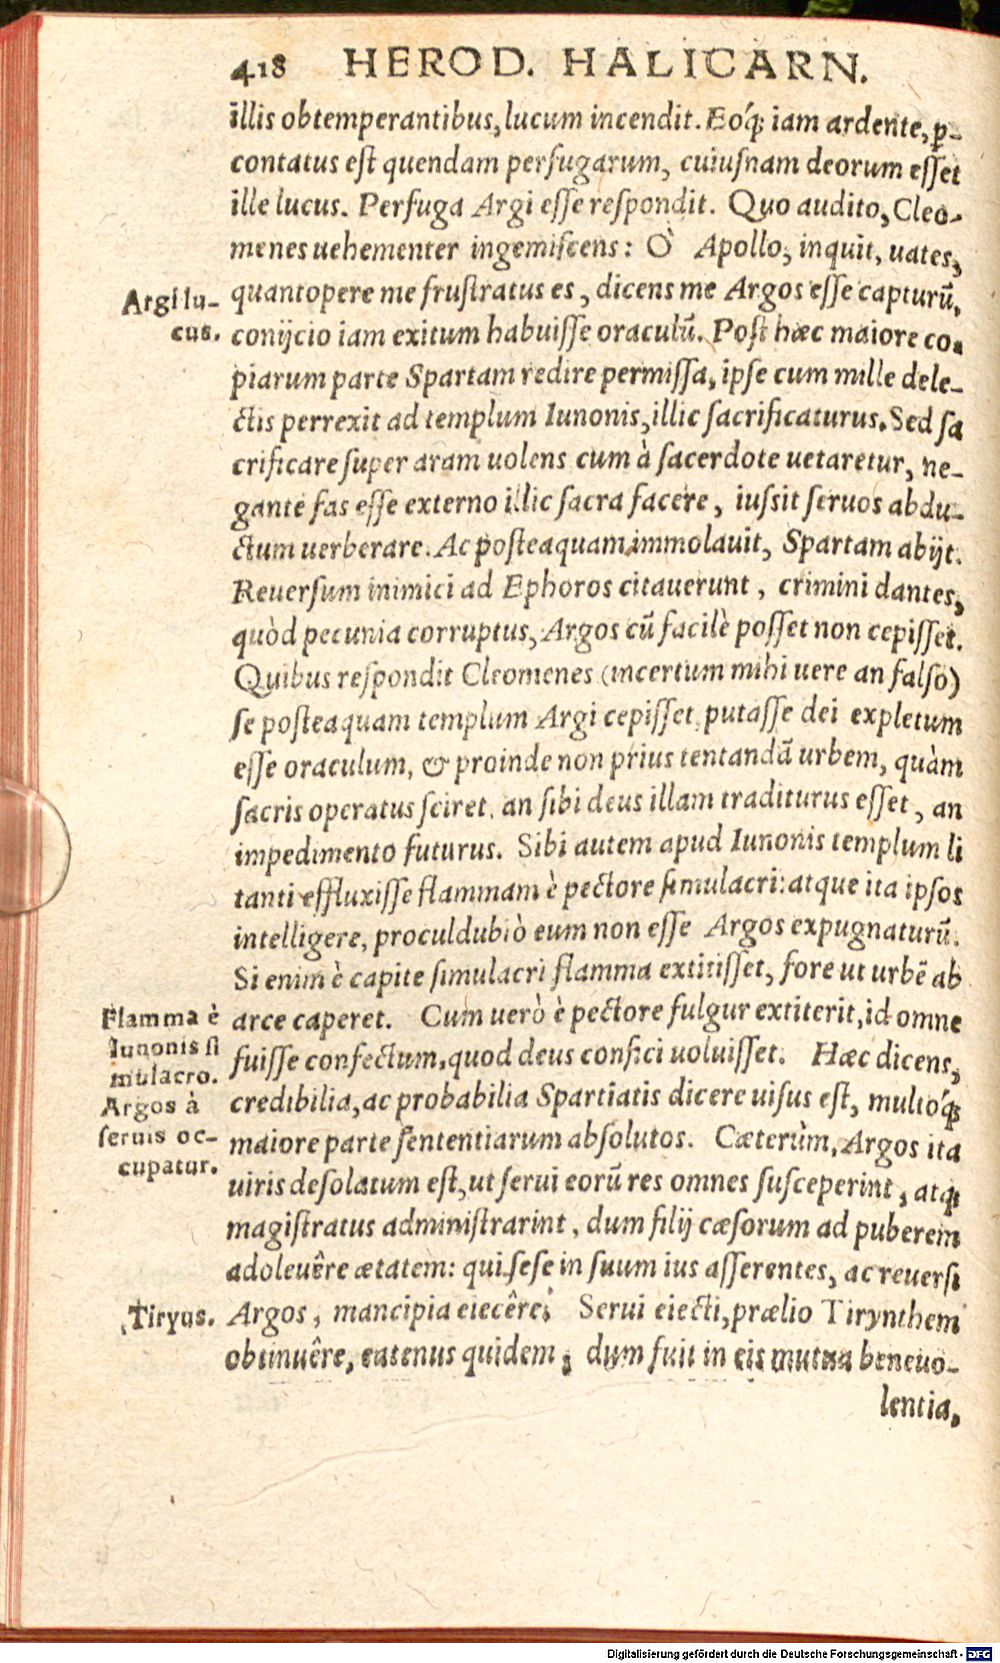 418 HEROD. HALICARN.
illis obtemperantibus, lucum incendit. Eóq́; iam ardente, ꝑ-
contatus est quendam perfugarum, cuiusnam deorum esset
ille lucus. Perfuga Argi esse respondit. Quo audito, Cleo-
menes uehementer ingemiscens: Ò Apollo, inquit, uates,
Argi lu-
cus.
quantopere me frustratus es, dicens me Argos esse capturũ,
conijcio iam exitum habuisse oraculũ. Post hæc maiore co-
piarum parte Spartam redire permissa, ipse cum mille dele-
ctis perrexit ad templum Iunonis, illic sacrificaturus. Sed sa
crificare super aram uolens cum à sacerdote uetaretur, ne-
gante fas esse externo illic sacra facere, iussit seruos abdu-
ctum uerberare. Ac posteaquam immolauit, Spartam abijt.
Reuersum inimici ad Ephoros citauerunt, crimini dantes,
quòd pecunia corruptus, Argos cũ facilè posset non cepisset.
Quibus respondit Cleomenes (incertum mihi uere an falso)
se posteaquam templum Argi cepisset, putasse dei expletum
esse oraculum, & proinde non prius tentandã urbem, quàm
sacris operatus sciret, an sibi deus illam traditurus esset, an
impedimento futurus. Sibi autem apud Iunonis templum li
tanti effluxisse flammam è pectore simulacri: atque ita ipsos
intelligere, proculdubiò eum non esse Argos expugnaturũ.
Si enim è capite simulacri flamma extitisset, fore ut urbẽ ab
Flamma è
Iunonis si
mulacro.
arce caperet. Cum uerò è pectore fulgur extiterit, id omne
fuisse confectum, quod deus confici uoluisset. Hæc dicens,
Argos à
seruis oc-
cupatur.
credibilia, ac probabilia Spartiatis dicere uisus est, multóq́;
maiore parte sententiarum absolutos. Cæterùm, Argos ita
uiris desolatum est, ut serui eorũ res omnes susceperint, atq;
magistratus administrarint, dum filij cæsorum ad puberem
adoleuêre ætatem: qui sese in suum ius asserentes, ac reuersi
Tiryus.
Argos, mancipia eiecêre; Serui eiecti, prælio Tirynthem
obtinuêre, eatenus quidem, dum fuit in eis mutua beneuo-
lentia,
Digitalisierung gefördert durch die Deutsche Forschungsgemeinschaft - DFG